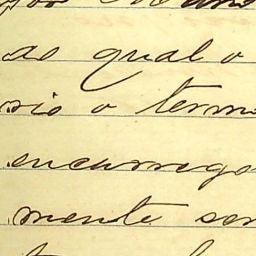 ao qual o
rio o termo
encarrego
mente ser